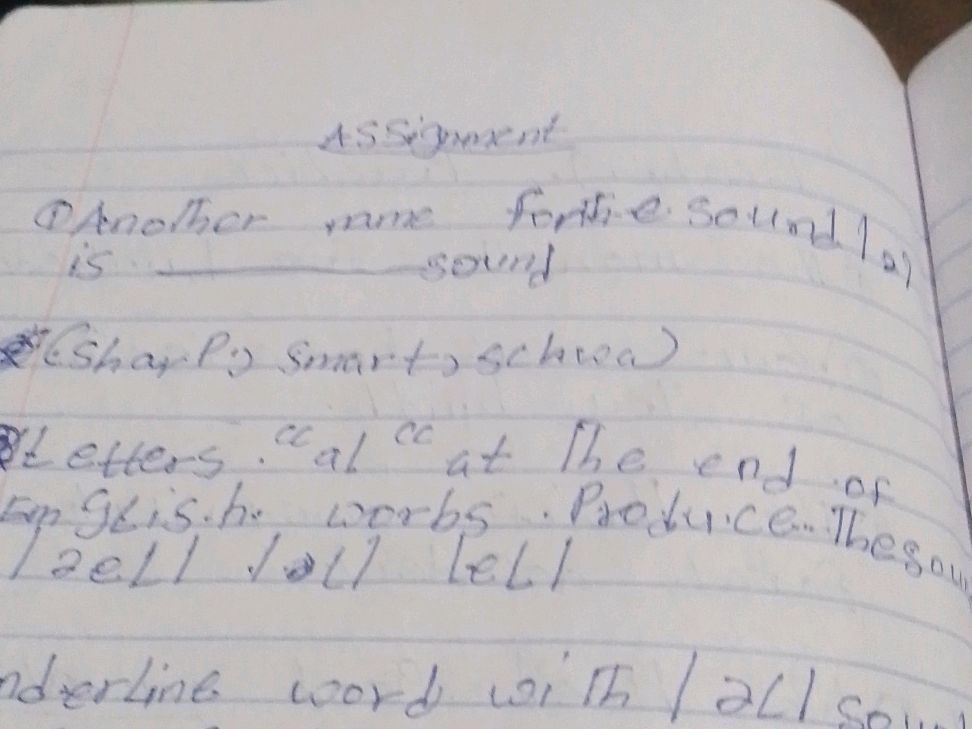 Assignment
① Another name for the sound /ə/
is ________ sound
(sharp, smart, schwa)
Letters "al" at the end of
English words. Produce the
/aeL/ /əL/ /eL/
word with /əL/